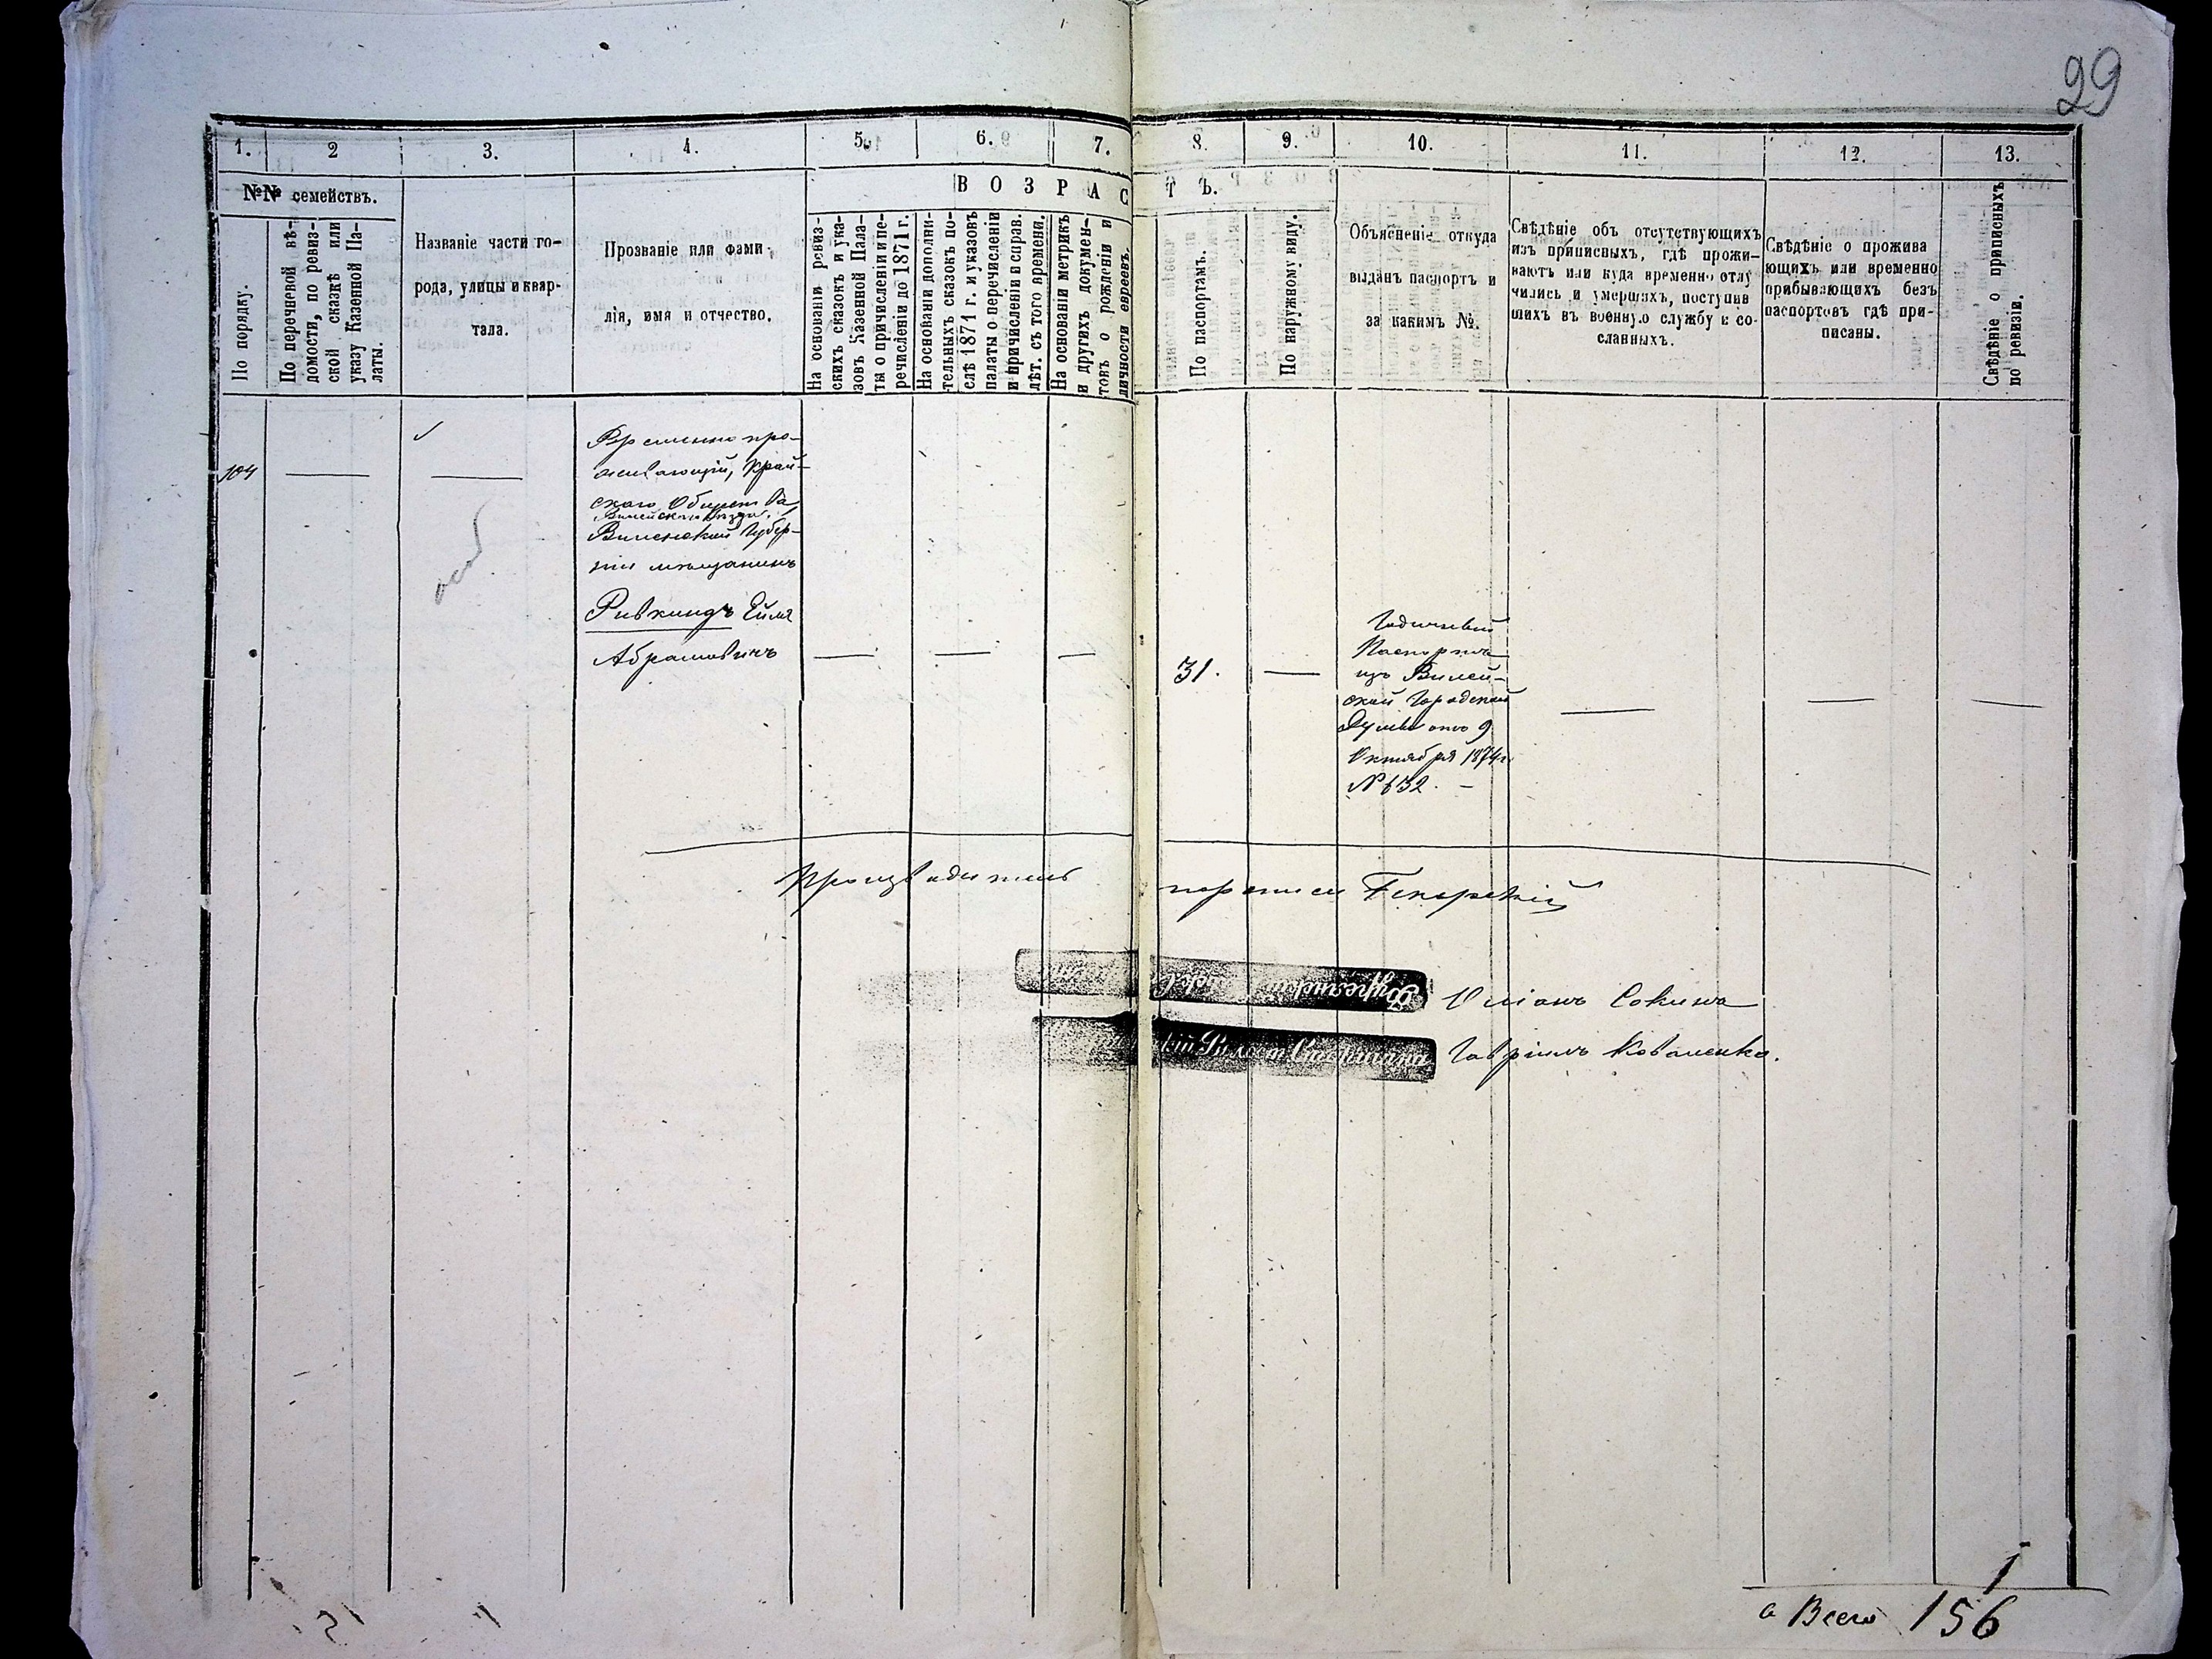 29
1.
2
3.
4.
5.
6.
7.
8.
9.
10.
11.
12.
13.
№№ семействъ.
ВОЗРАСТЪ.
По порядку.
По перечневой вѣ-
домости, по ревиз-
ской сказкѣ или
указу Казенной Па-
латы.
Названіе части го-
рода, улицы и квар-
тала.
Прозваніе или фами-
лія, имя и отчество.
На основаніи ревиз-
скихъ сказокъ и ука-
зовъ Казенной Пала-
ты о причисленіи и пе-
речисленіи до 1871 г.
На основаніи дополни-
тельныхъ сказокъ по-
слѣ 1871 г. и указовъ
палаты о перечисленіи
и причисленіи и справ.
лѣт. съ того времени.
На основаніи метрикъ
и другихъ докумен-
товъ о рожденіи и
личности евреевъ.
По паспортамъ.
По наружному виду.
Объясненіе откуда
выданъ паспортъ и
за какимъ №.
Свѣдѣніе объ отсутствующихъ
изъ приписныхъ, гдѣ прожи-
ваютъ или куда временно отлу
чились и умершихъ, поступив
шихъ въ военную службу и со-
сланныхъ.
Свѣдѣніе о прожива
ющихъ или временно
прибывающихъ безъ
паспортовъ гдѣ при-
писаны.
Свѣдѣніе о приписныхъ
по ревизіи.
104
Временно про-
живающій, Край-
скаго Общества
Вилейскаго уѣзда,
Виленской Губер-
ніи мѣщанинъ
Ривкиндъ
Абрамовичъ
31.
Годичный
Паспортъ
изъ Вилей-
ской Городской
Думы отъ 9
Октября 1874 г.
№ 632.
Производитель переписи
Сокина
Гавріилъ Коваленко.
1
а Всего 156